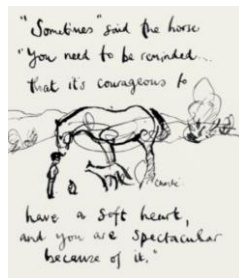 "Sometimes" said the horse
"You need to be reminded...
that it's courageous to
Charlie
have a soft heart,
and you are spectacular
because of it."